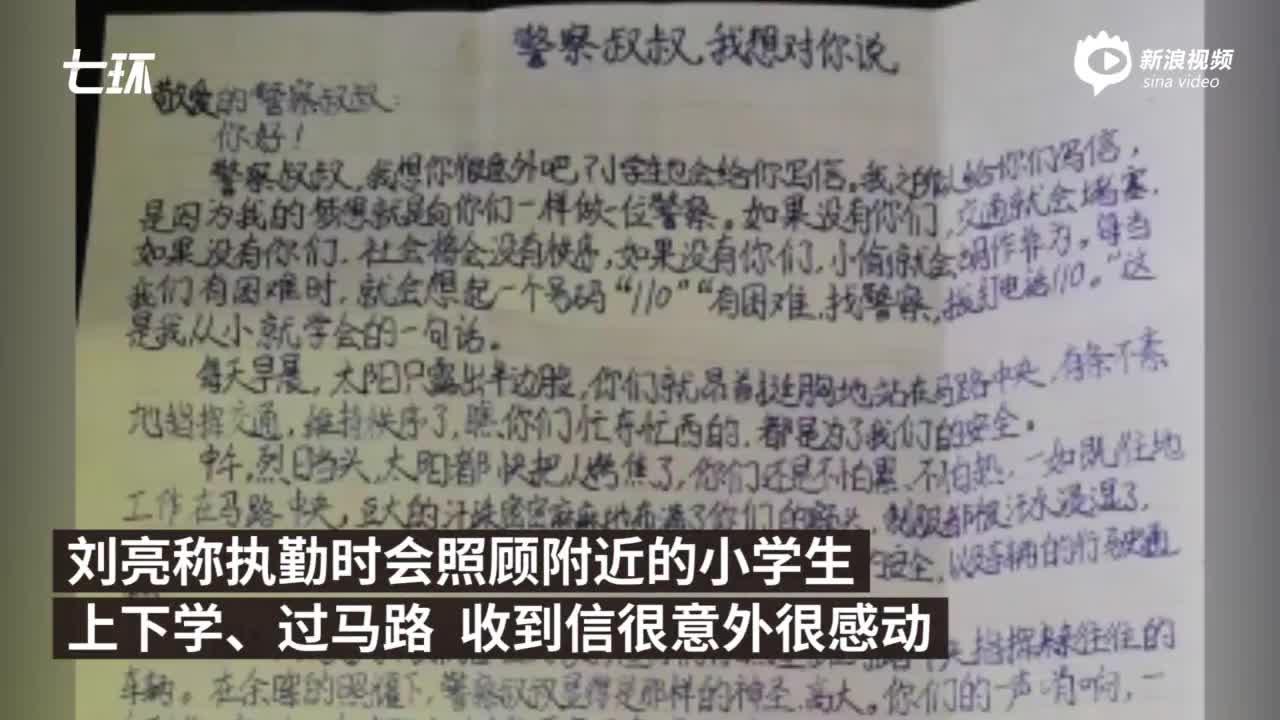 七环
新浪视频
sina video
警察叔叔,我想对你说
敬爱的警察叔叔:
你好!
警察叔叔,我想你很意外吧?小学生也会给你写信。我之所以给你们写信,
是因为我的梦想就是向你们一样做一位警察。如果没有你们,交通就会堵塞.
如果没有你们.社会将会没有秩序,如果没有你们.小偷就会胡作非为。每当
我们有困难时.就会想起一个号码“110”“有困难.找警察,拨打电话110。”这
是我从小就学会的一句话。
每天早晨,太阳只露出半边脸,你们就昂首挺胸地站在马路中央,有条不紊
地指挥交通,维持秩序了,瞧.你们忙东忙西的.都是为了我们的安全。
中午,烈日当头,太阳都快把人烤焦了,你们还是不怕黑.不怕热,一如既往地
工作在马路中央,巨大的汗珠密密麻麻地布满了你们的额头,制服都被汗水浸湿了,
的安全,以及车辆的行驶通
刘亮称执勤时会照顾附近的小学生
上下学、过马路 收到信很意外很感动
央,指挥来来往往的
车辆。在余晖的照耀下,警察叔叔显得是那样的神圣.高大。你们的一声哨响,一